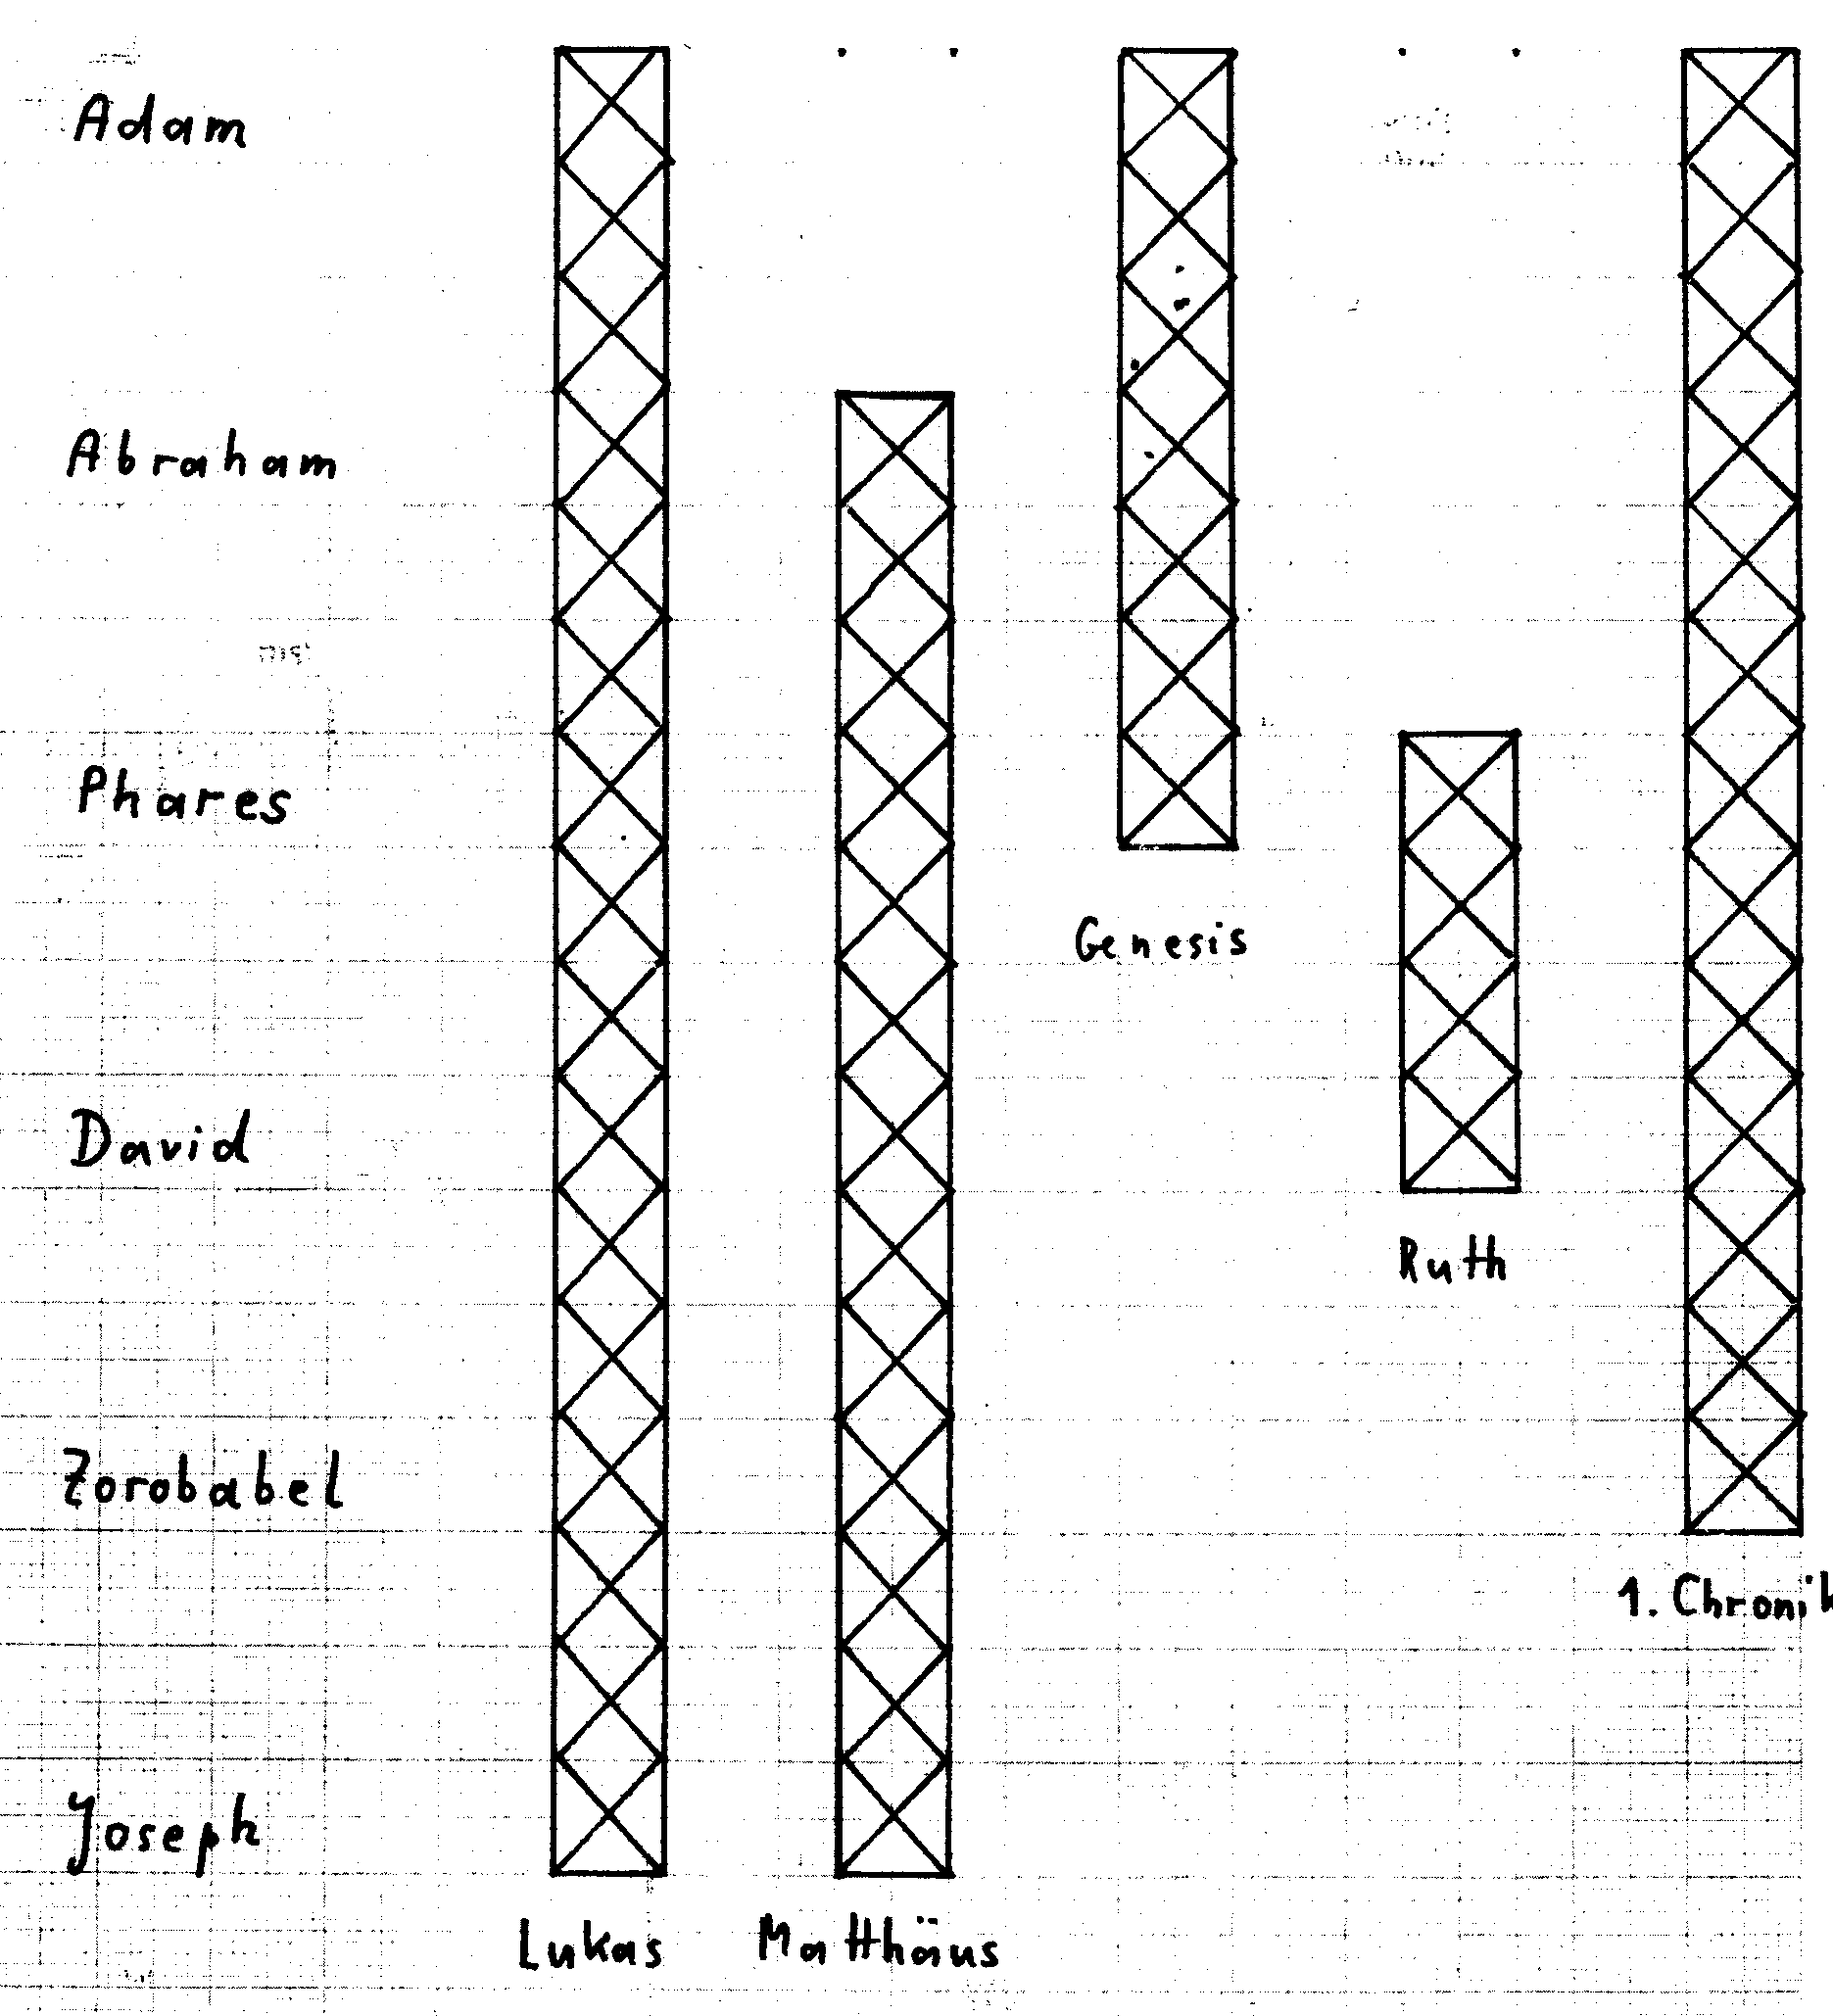 Adam
Abraham
Phares
Genesis
David
Ruth
Zorobabel
1. Chronik
Joseph
Lukas
Matthäus